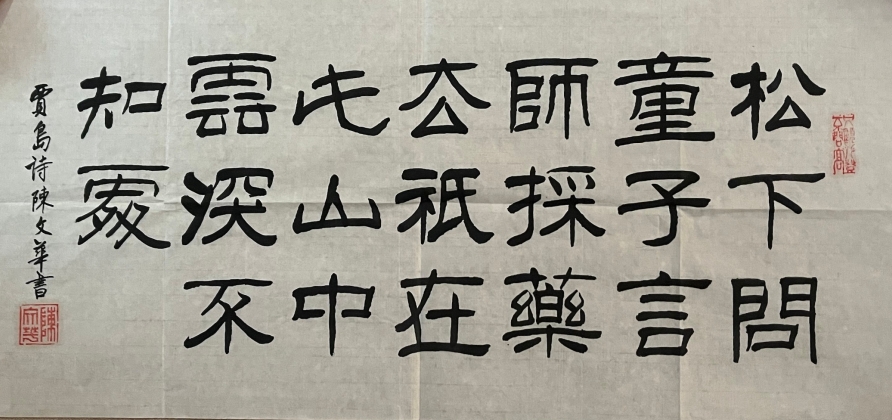 松下問
童子言
師採藥
去祇在
此山中
雲深不
知處
賈島詩陳文華書
陳文華